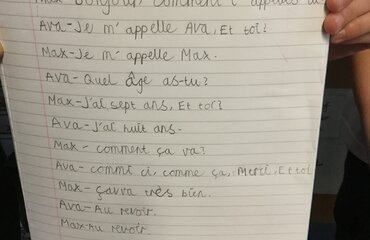 Max- Bonjour, Comment t'appelles tu
Ava-Je m'appelle Ava, Et toi?
Max-Je m'appelle Max.
Ava-Quel âge as-tu?
Max-J'ai sept ans, Et toi?
Ava-J'ai huit ans.
Max - comment ça va?
Ava-commi ci, comme ça, Merci, Et toi
Max- çavva très bien.
Ava-Au revoir.
Max-Au revoir.